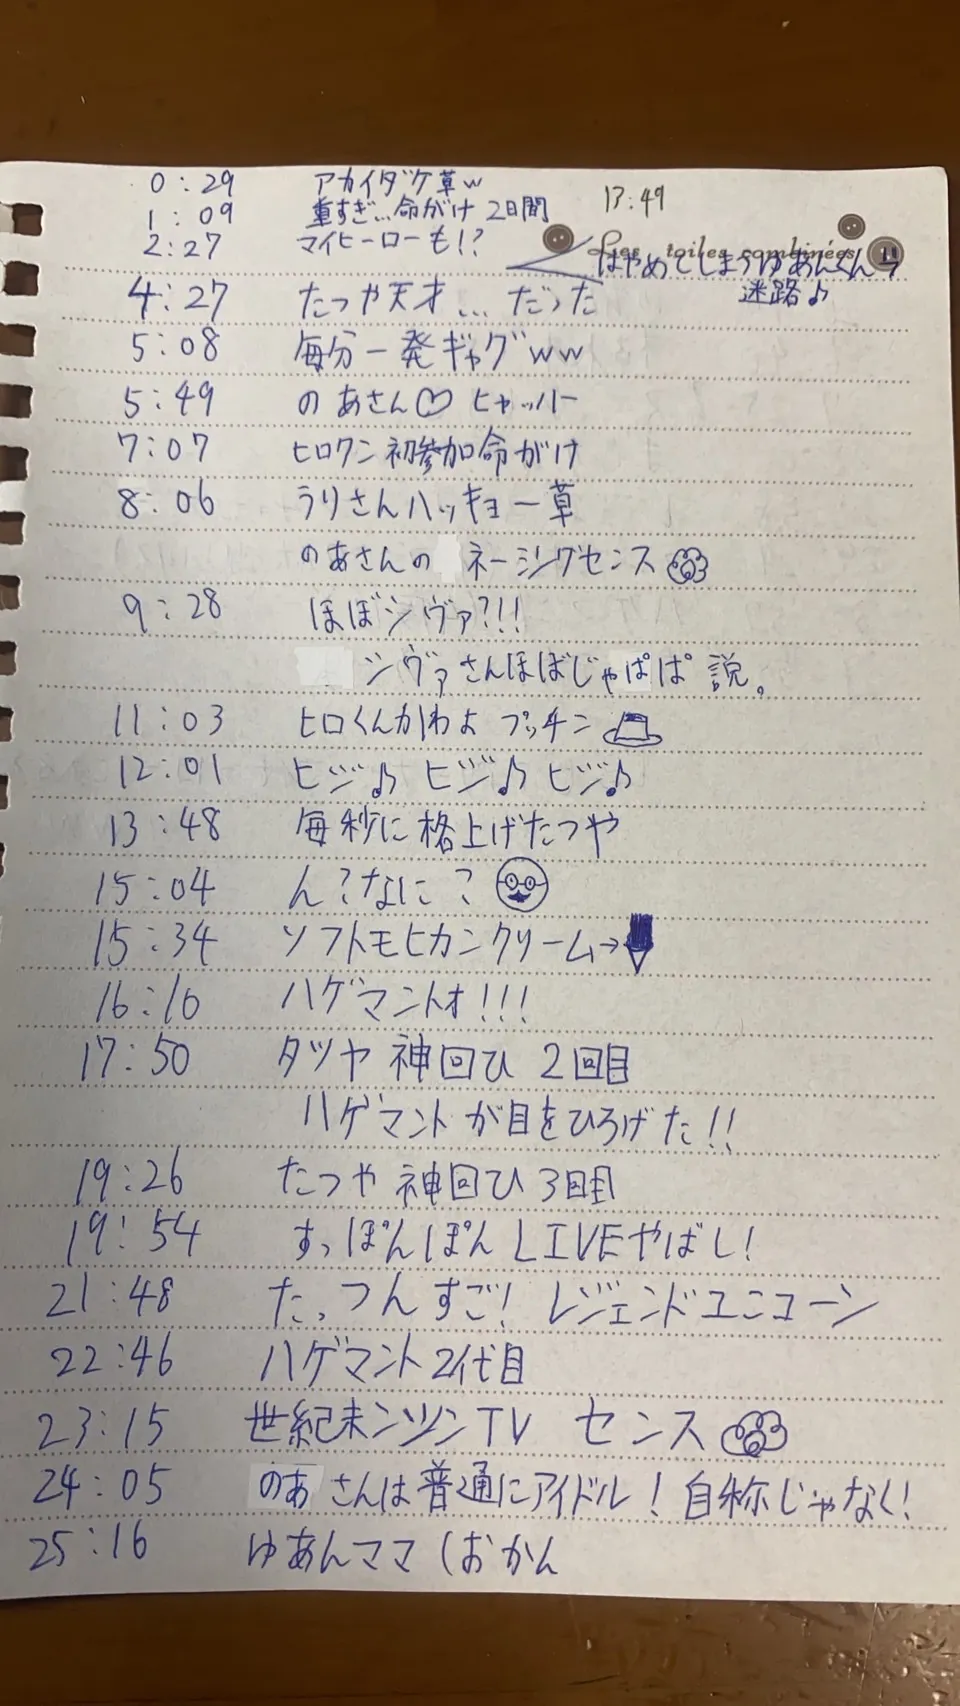 0:29 アカイダケ草w
13:49
1:09 重すぎ...命がけ 2日間
2:27 マイヒーローも!?
Les toiles combinées
はやめてしまうゆあんくん→
迷路♪
4:27 たつや天才... だった
5:08 毎分一発ギャグww
5:49 のあさん♡ ヒャッハー
7:07 ヒロクン初参加命がけ
8:06 うりさんハッキョー草
のあさんの ネーミングセンス
9:28 ほぼシヴァ?!!
シヴァさんほぼじゃぱぱ説。
11:03 ヒロくんかわよ プッチン
12:01 ヒジ♪ ヒジ♪ ヒジ♪
13:48 毎秒に格上げたつや
15:04 ん?なに?
15:34 ソフトモヒカンクリーム→
16:16 ハゲマントォ!!!
17:50 タツヤ 神回ひ 2回目
ハゲマントが目をひろげた!!
19:26 たつや 神回ひ 3回目
19:54 すっぽんぽん LIVEやばし!
21:48 たっつんすご! レジェンドユニコーン
22:46 ハゲマント2代目
23:15 世紀末ンツンTV センス
24:05 のあさんは普通にアイドル!自称じゃなく!
25:16 ゆあんママ(おかん